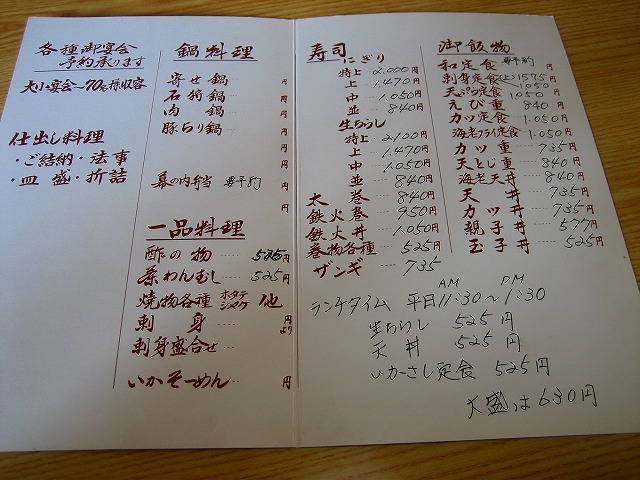 各種御宴会
予約承ります
大小宴会〜70名様収容
仕出し料理
・ご結納・法事
・皿盛・折詰
鍋料理
寄せ鍋 円
石狩鍋 円
肉鍋 円
豚ちり鍋 円
円
円
幕の内弁当 要予約
円
一品料理
酢の物 525円
茶わんむし 525円
焼物各種 ホタテ シャケ 他
刺身 円より
刺身盛合せ
いかそーめん 円
寿司
にぎり
特上 2,000円
上 1,470円
中 1,050円
並 840円
生ちらし
特上 2,100円
上 1,470円
中 1,050円
並 840円
太巻 840円
鉄火巻 950円
鉄火丼 1,050円
巻物各種 525円
ザンギ 735
御飯物
和定食 要予約
刺身定食(上) 1575円
1,050
天ぷら定食 1,050円
えび重 840円
カツ定食 1,050円
海老フライ定食 1,050円
カツ重 735円
天とじ重 840円
海老天丼 840円
天丼 735円
カツ丼 735円
親子丼 577円
玉子丼 525円
ランチタイム 平日 AM 11:30〜PM 1:30
生ちらし 525円
天丼 525円
いかさし定食 525円
大盛は630円